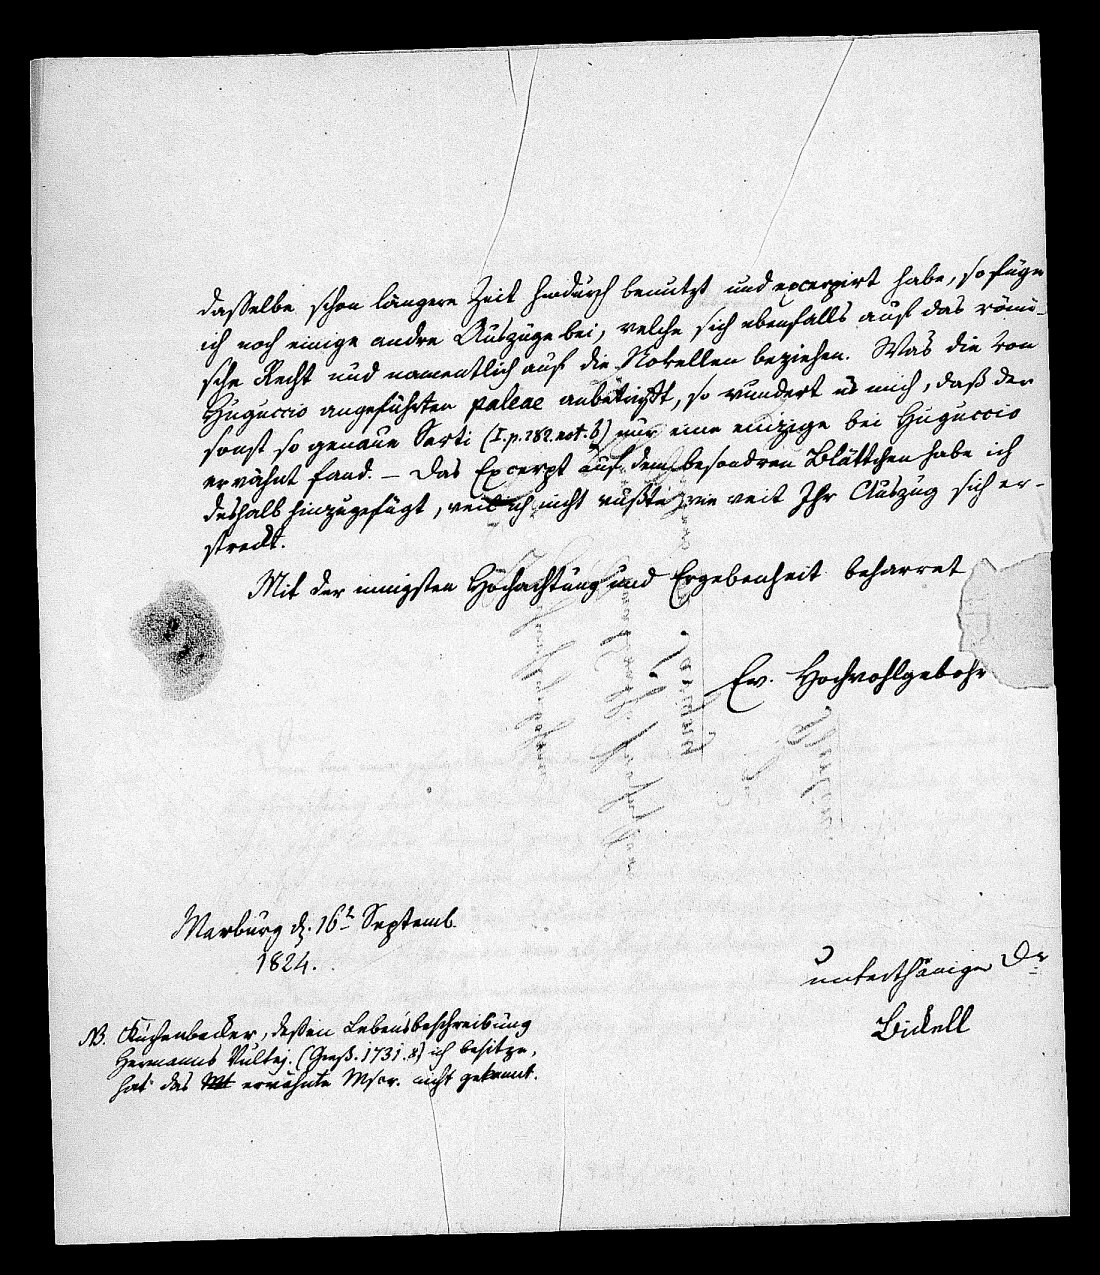 dasselbe schon längere Zeit hindurch benutzt und excerpirt habe, so füge
ich noch einige andre Auszüge bei, welche sich ebenfalls auf das römi-
sche Recht und namentlich auf die Novellen beziehen. Was die von
Huguccio angeführten paleae anbetrifft, so wundert es mich, daß der
sonst so genaue Sarti (I. p. 282. not. b) nur eine einzige bei Huguccio
erwähnt fand. – Das Excerpt auf dem besondren Blättchen habe ich
deshalb hinzugefügt, weil ich nicht wußte wie weit Ihr Auszug sich er-
streckt.
Mit der innigsten Hochachtung und Ergebenheit beharret
Ew. Hochwohlgebohr
Marburg d. 16t Septemb.
1824.
unterthäniger Dr
Bickell
NB. Kuchenbecker, dessen Lebensbeschreibung
Hermanns Vultej. (Gieß. 1731. 8) ich besitze,
hat das erwähnte Mscr. nicht gekannt.